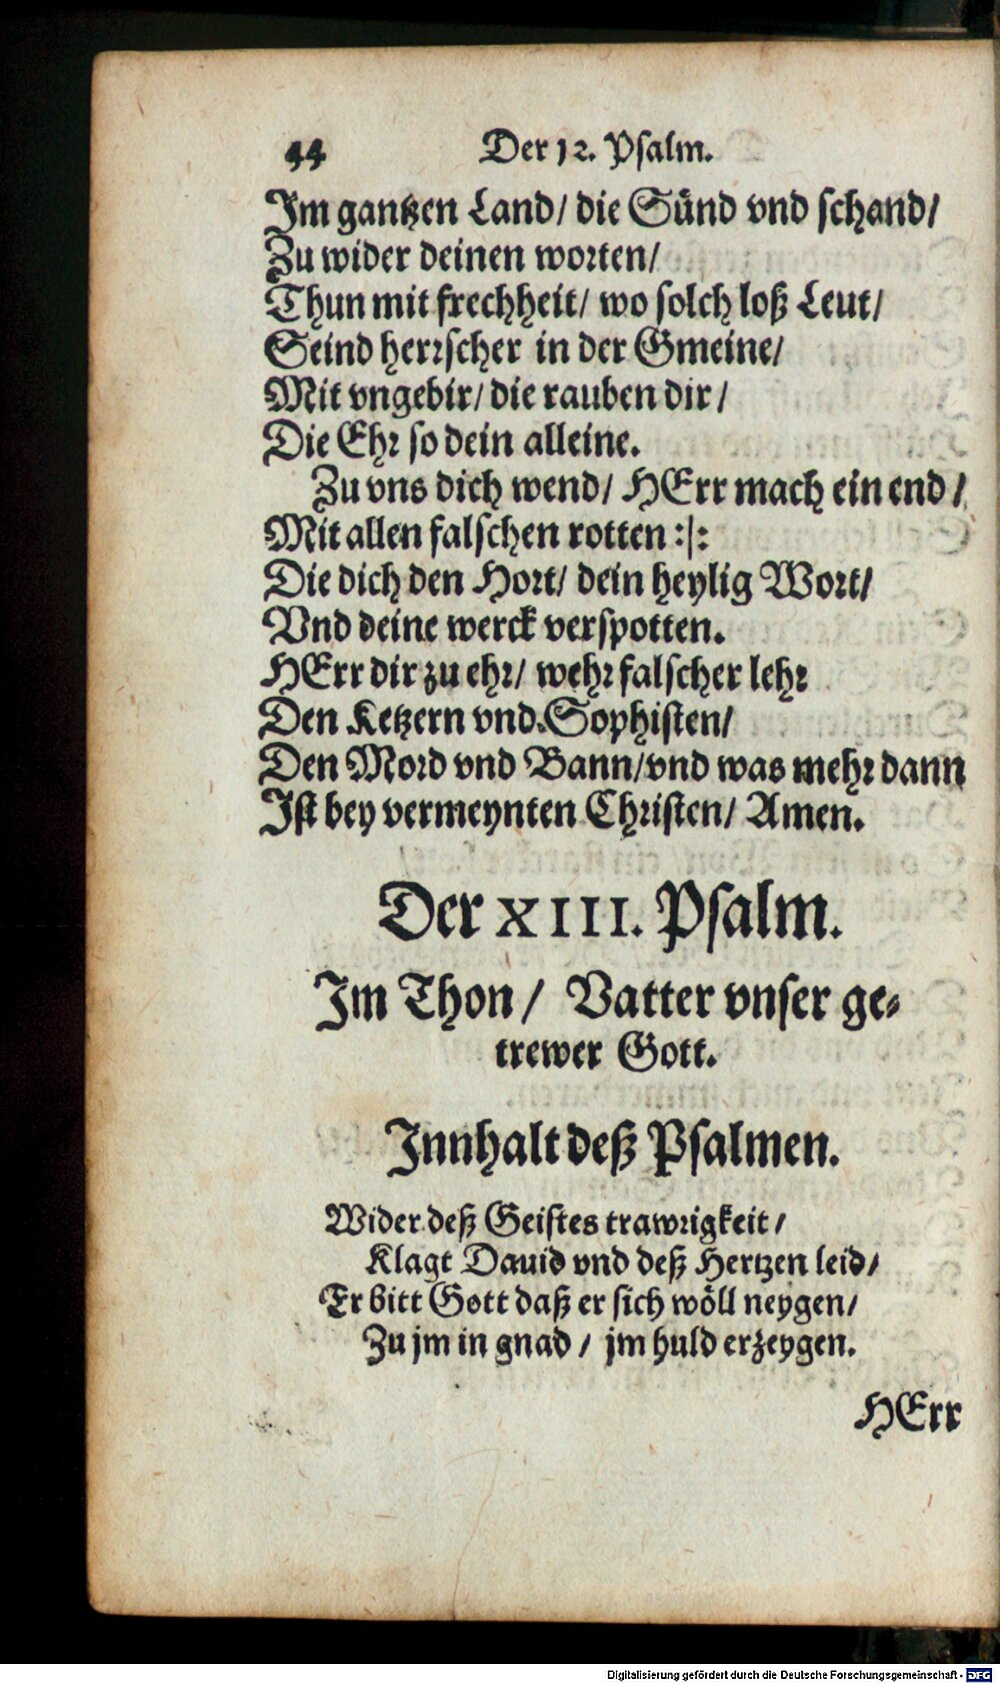 44 Der 12. Psalm.
Im gantzen Land/ die Sünd vnd schand/
Zu wider deinen worten/
Thun mit frechheit/ wo solch loß Leut/
Seind herrscher in der Gmeine/
Mit vngebir/ die rauben dir/
Die Ehr so dein alleine.
Zu vns dich wend/ HErr mach ein end/
Mit allen falschen rotten :|:
Die dich den Hort/ dein heylig Wort/
Vnd deine werck verspotten.
HErr dir zu ehr/ wehr falscher lehr
Den Ketzern vnd Sophisten/
Den Mord vnd Bann/vnd was mehr dann
Ist bey vermeynten Christen/ Amen.
Der XIII. Psalm.
Im Thon/ Vatter vnser ge-
trewer Gott.
Innhalt deß Psalmen.
Wider deß Geistes trawrigkeit/
Klagt Dauid vnd deß Hertzen leid/
Er bitt Gott daß er sich wöll neygen/
Zu jm in gnad/ jm huld erzeygen.
HErr
Digitalisierung gefördert durch die Deutsche Forschungsgemeinschaft - DFG